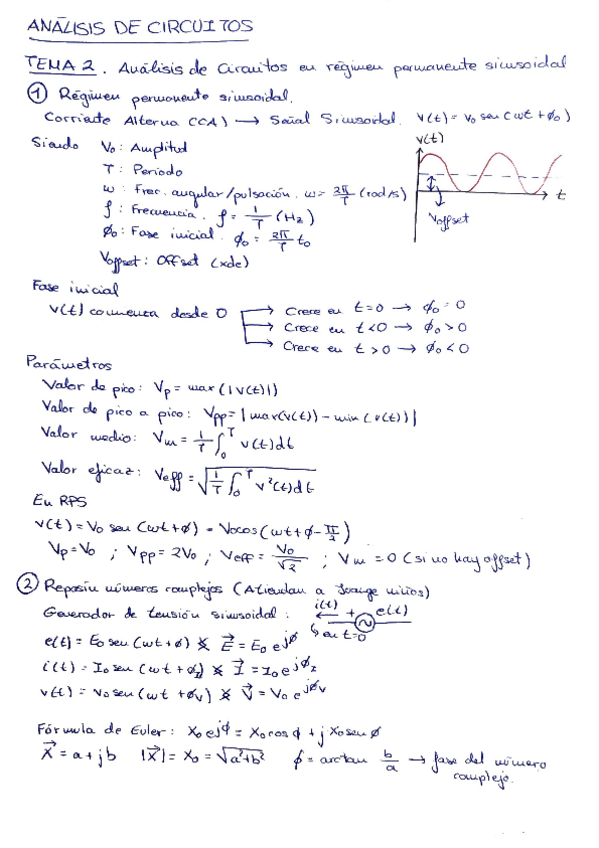 ANÁLISIS DE CIRCUITOS
TEMA 2. Análisis de Circuitos en régimen permanente sinusoidal
① Régimen permanente sinusoidal.
Corriente Alterna (CA) → Señal Sinusoidal. v(t) = V₀ sen(ωt + ϕ₀)
Siendo V₀: Amplitud
T: Periodo
ω: Frec. angular/pulsación. ω = 2π/T (rad/s)
f: Frecuencia. f = 1/T (Hz)
ϕ₀: Fase inicial. ϕ₀ = 2π/T t₀
Voffset: Offset (xdc)
v(t)
t
Voffset
Fase inicial
v(t) comienza desde 0
→ Crece en t=0 → ϕ₀ = 0
→ Crece en t<0 → ϕ₀ > 0
→ Crece en t>0 → ϕ₀ < 0
Parámetros
Valor de pico: Vp = max(|v(t)|)
Valor de pico a pico: Vpp = |max(v(t)) - min(v(t))|
Valor medio: Vm = 1/T ∫₀ᵀ v(t)dt
Valor eficaz: Veff = √(1/T ∫₀ᵀ v²(t)dt)
En RPS
v(t) = V₀ sen(ωt + ϕ) = V₀cos(ωt + ϕ - π/2)
Vp = V₀ ; Vpp = 2V₀ ; Veff = V₀/√2 ; Vm = 0 (si no hay offset)
② números complejos
Generador de tensión sinusoidal: i(t) + e(t)
↳ en t=0
e(t) = E₀ sen(ωt + ϕ) E⃗ = E₀ e^jϕ
i(t) = I₀ sen(ωt + ϕI) I⃗ = I₀ e^jϕI
v(t) = V₀ sen(ωt + ϕv) V⃗ = V₀ e^jϕv
Fórmula de Euler: X₀ e^jϕ = X₀ cos ϕ + j X₀ sen ϕ
X⃗ = a + jb |X⃗| = X₀ = √(a²+b²) ϕ = arctan b/a → fase del número
complejo.